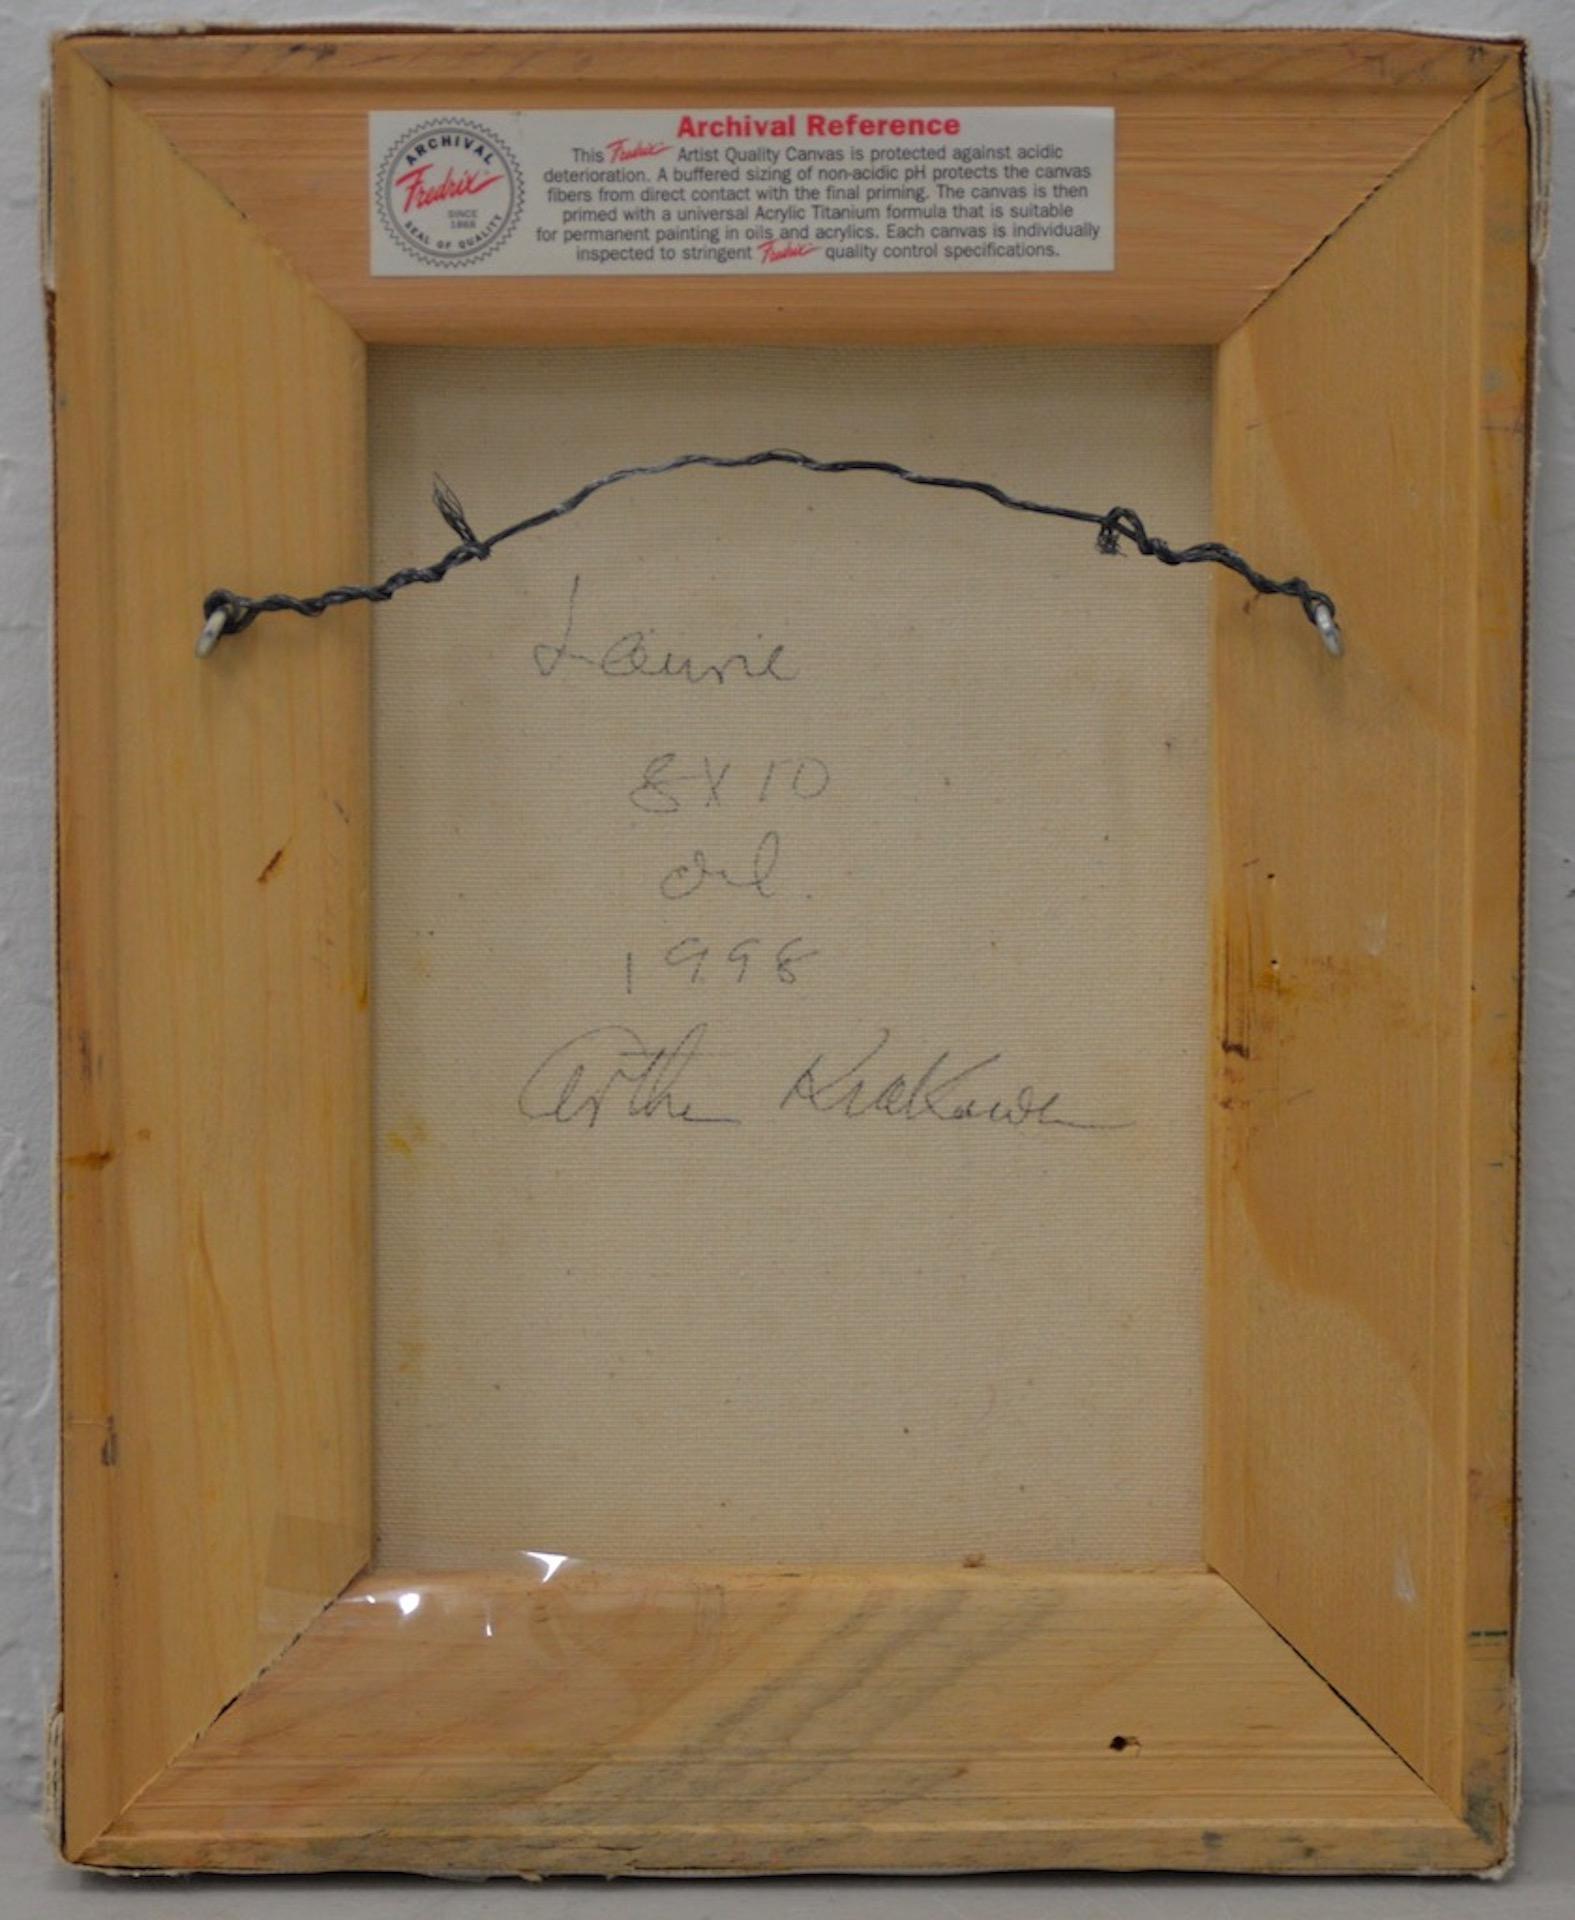 ARCHIVAL
Fredrix
SINCE
1868
SEAL OF QUALITY
Archival Reference
This Fredrix Artist Quality Canvas is protected against acidic
deterioration. A buffered sizing of non-acidic pH protects the canvas
fibers from direct contact with the final priming. The canvas is then
primed with a universal Acrylic Titanium formula that is suitable
for permanent painting in oils and acrylics. Each canvas is individually
inspected to stringent Fredrix quality control specifications.
Laurie
8 X 10
oil.
1998
Arthur Krakower